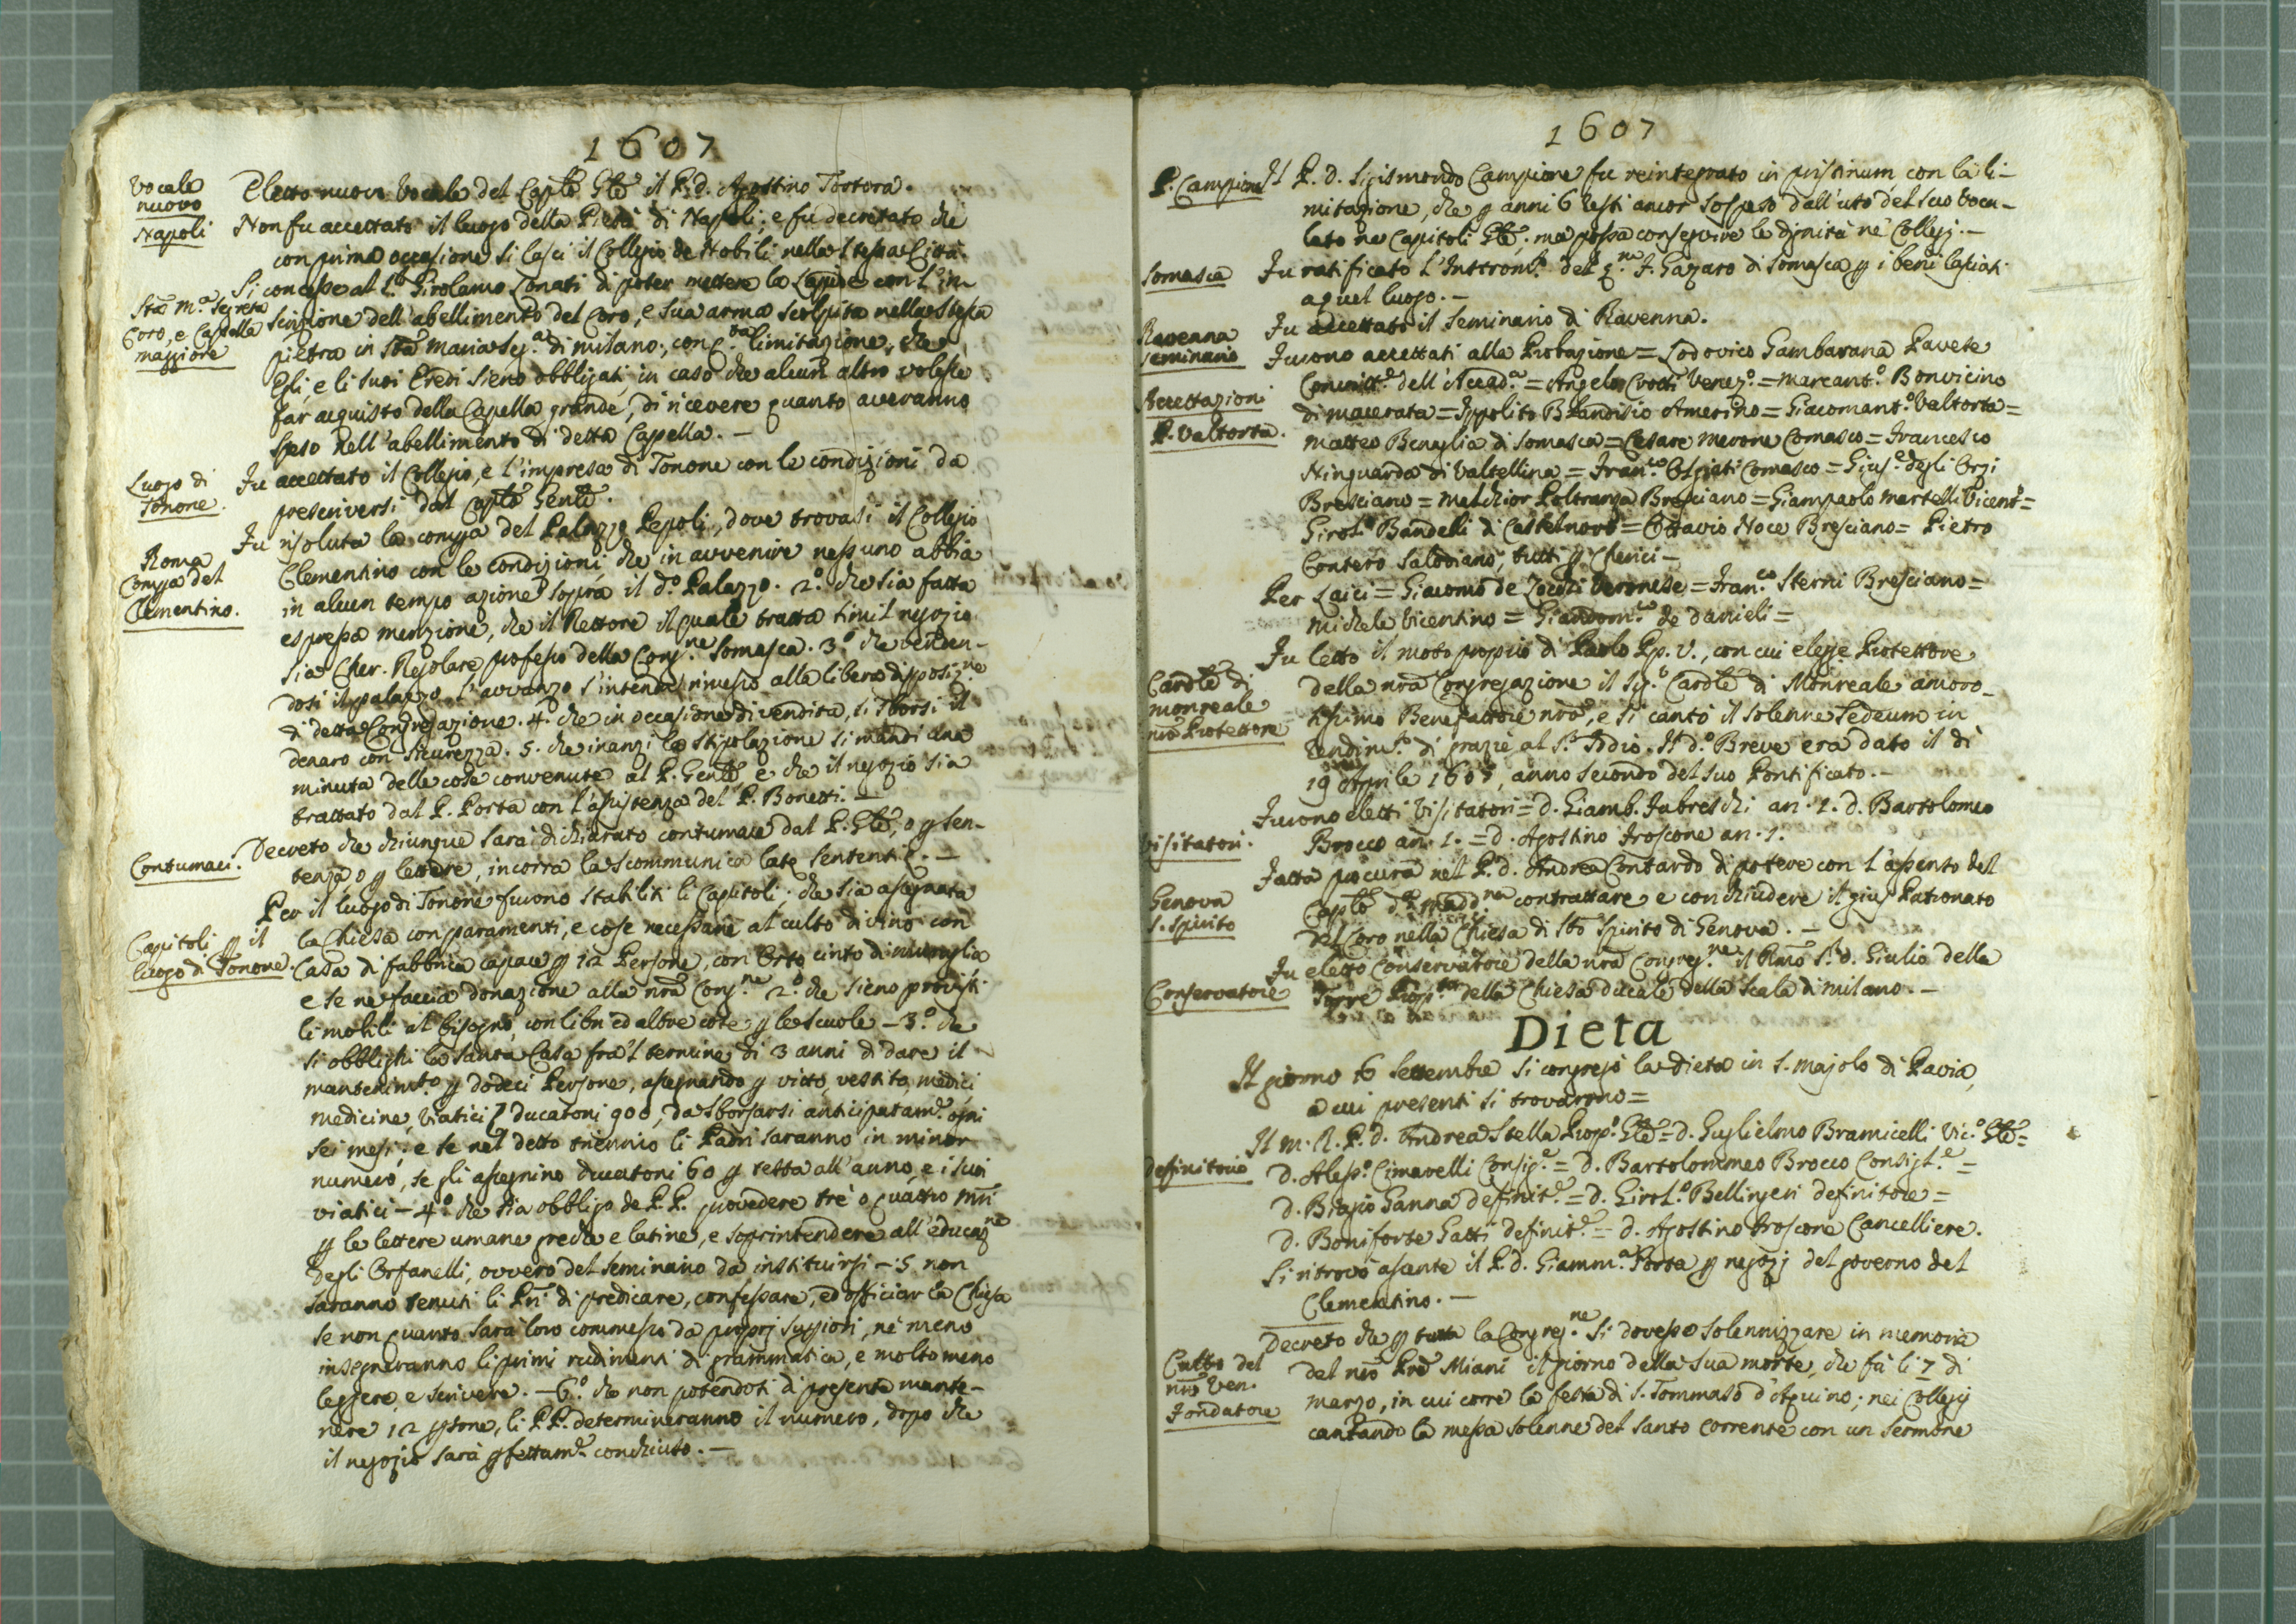 1607
Vocale
nuovo
Eletto nuovo Vocale del Caplo Gle il P. d. Agostino Tortora.
Napoli
Non fu accettato il luogo della Pietà di Napoli; e fu decretato che
con prima occasione si lasci il Collegio de Nobili nella stessa Città.
Sta Ma Segreta
Coro, e Cappella
maggiore
Si concesse al S. Girolamo Lonati di poter mettere la Lapide con l'in-
scrizione dell'abellimento del Coro, e sua arma scolpita nella stessa
pietra in Sta Maria Seg.a di Milano; con limitazione, che
Egli, e li suoi Eredi sieno obbligati, in caso che alcun altro volesse
far acquisto della Capella grande, di ricevere quanto averanno
speso nell'abellimento di detta Capella. -
Luogo di
Tonone.
Fu accettato il Collegio, e l'impresa di Tonone con le condizioni da
prescriversi dal Caplo Genle.
Roma
Compa del
Clementino.
Fu risoluta la compa del Palazzo Pepoli, dove trovasi il Collegio
Clementino con le condizioni che in avvenire nessuno abbia
in alcun tempo azione sopra il d.o Palazzo. 2.o che sia fatta
espressa menzione, che il Rettore il quale tratta simil negozio
sia Cher. Regolare professo della Cong.ne Somasca. 3.o che venden-
dosi il palazzo l'avvanzo s'intenda rimesso alla libera disposiz.ne
di detta Congregazione. 4. che in occasione di vendita, si sborsi il
denaro con sicurezza. 5. che inanzi la stipolazione si mandi una
minuta delle cose convenute al P. Genle, e che il negozio sia
trattato dal P. Porta con l'assistenza del P. Bonetti. -
Contumaci.
Decreto che chiunque sarà dichiarato contumace dal P. Gle, o p sen-
tenza o p lettere, incorra la scommunica late sententie. -
Capitoli p il
luogo di Tonone.
Per il luogo di Tonone furono stabiliti li Capitoli. che sia assegnata
la Chiesa con paramenti, e cose necessarie al culto divino con
Casa di fabbrica capace p 12 Persone, con Orto cinto di muraglia
e se ne faccia donazione alla nra Cong.ne 2.o che sieno provisti
li mobili al bisogno, con libri ed altre cose p le scuole - 3.o che
si obblighi la Santa Casa fra 'l termine di 3 anni di dare il
mantenim.to p dodeci Persone, assegnando p vitto, vestito, medici
medicine, viatici ducatoni 900, da sborsarsi anticipatam.e ogni
sei mesi; e se nel detto triennio li Padri saranno in minor
numero, se gli assegnino ducatoni 60 p testa all'anno, e i suoi
viatici - 4.o che sia obbligo de P.P. provedere tre o quattro Mri
p le lettere umane greche e latine, e soprintendere all'educaz.ne
degli Orfanelli, ovvero del seminario da instituirsi - 5. non
saranno tenuti li Pri di predicare, confessare, ed officiar la Chiesa
se non quanto sarà loro commesso da proprj suppiori, nè meno
insegneranno li primi rudimenti di grammatica, e molto meno
leggere, e scrivere. - 6.o che non potendosi di presente mante-
nere 12 psone, li P.P. determineranno il numero, dopo che
il negozio sarà pfettam.e conchiuso. -
1607
P. Campione
Il P. d. Sigismondo Campione fu reintegrato in pristinum con la li-
mitazione, che p anni 6 resti ancor sospeso dall'uso del suo voca-
lato ne Capitoli Gli; ma possa conseguire le dignità ne Collegj. -
Somasca
Fu ratificato l'Instrom.to del q.m F. Gazaro di Somasca p i beni lasciati
a quel luogo. -
Ravenna
Seminario
Fu accettato il Seminario di Ravenna.
Accettazioni
P. Valtorta.
Furono accettati alla Probazione = Lodovico Gambarana Pavese
Convitt.e dell'Accad.a = Angelo Crotti Venez.o = Marcant.o Bonvicino
di Macerata = Ippolito Blandisio Amerino = Giacomant.o Valtorta =
Matteo Benaglia di Somasca = Cesare Merone Comasco = Francesco
Ninguarda di Valtellina = Fran.co Ospiati Comasco = Gius.e degli Orzi
Bresciano = Melchior Poltranga Bresciano = Giampaolo Martelli Vicent.o =
Girol.o Bandelli di Castelnovo = Ottavio Noce Bresciano = Pietro
Contero Salodiano, tutti p Cherici -
Per Laici = Giacomo de Zocchi Veronese = Fran.co Sterni Bresciano =
Michele Vicentino = Giandom.co de Danieli =
Cardle di
Monreale
nro Protettore
Fu letto il moto proprio di Paolo Pp. V., con cui elesse Protettore
della nra Congregazione il Sig.r Cardle di Monreale amoro-
sissimo Benefattore nro, e si cantò il solenne Tedeum in
rendim.to di grazie al S.r Iddio. Il d.o Breve era dato il dì
19 Aprile 1607, anno secondo del suo Pontificato. -
Visitatori.
Furono eletti Visitatori = d. Giamb. Fabreschi an. 1. d. Bartolomeo
Brocco an. 1. = d. Agostino Froscone an. 1.
Genova
S. Spirito
Fatta procura nel P. d. Andrea Contardo di potere con l'assenso del
Caplo d.a Madd.na contrattare e conchiudere il gius Patronato
del Coro nella Chiesa di Sto Spirito di Genova. -
Conservatore
Fu eletto Conservatore della nra Congreg.ne il Rmo S.r d. Giulio della
Torre Prop.to della Chiesa ducale della Scala di Milano. -
Dieta
Il giorno 6 Settembre si congregò la Dieta in S. Majolo di Pavia,
a cui presenti si trovarono =
Definitorio
Il M. R. P. d. Andrea Stella Prop.o Gle = d. Guglielmo Bramicelli Vic.o Gle =
D. Aless.o Cimarelli Consig.e = D. Bartolommeo Brocco Consigl.e =
D. Biagio Ganna definit.e = D. Girol.o Bellingeri definitore =
D. Boniforte Gatti definit.e = D. Agostino Froscone Cancelliere.
Si ritrovò assente il P. d. Giamm.a Porta p negozj del governo del
Clementino. -
Culto del
nro Ven.
Fondatore
Decreto che p tutta la Congreg.ne si dovesse solennizzare in memoria
del nro Pre Miani il giorno della sua morte, che fu li 7 di
marzo, in cui corre la festa di S. Tommaso d'Aquino; nei Collegj
cantando la messa solenne del Santo corrente con un sermone